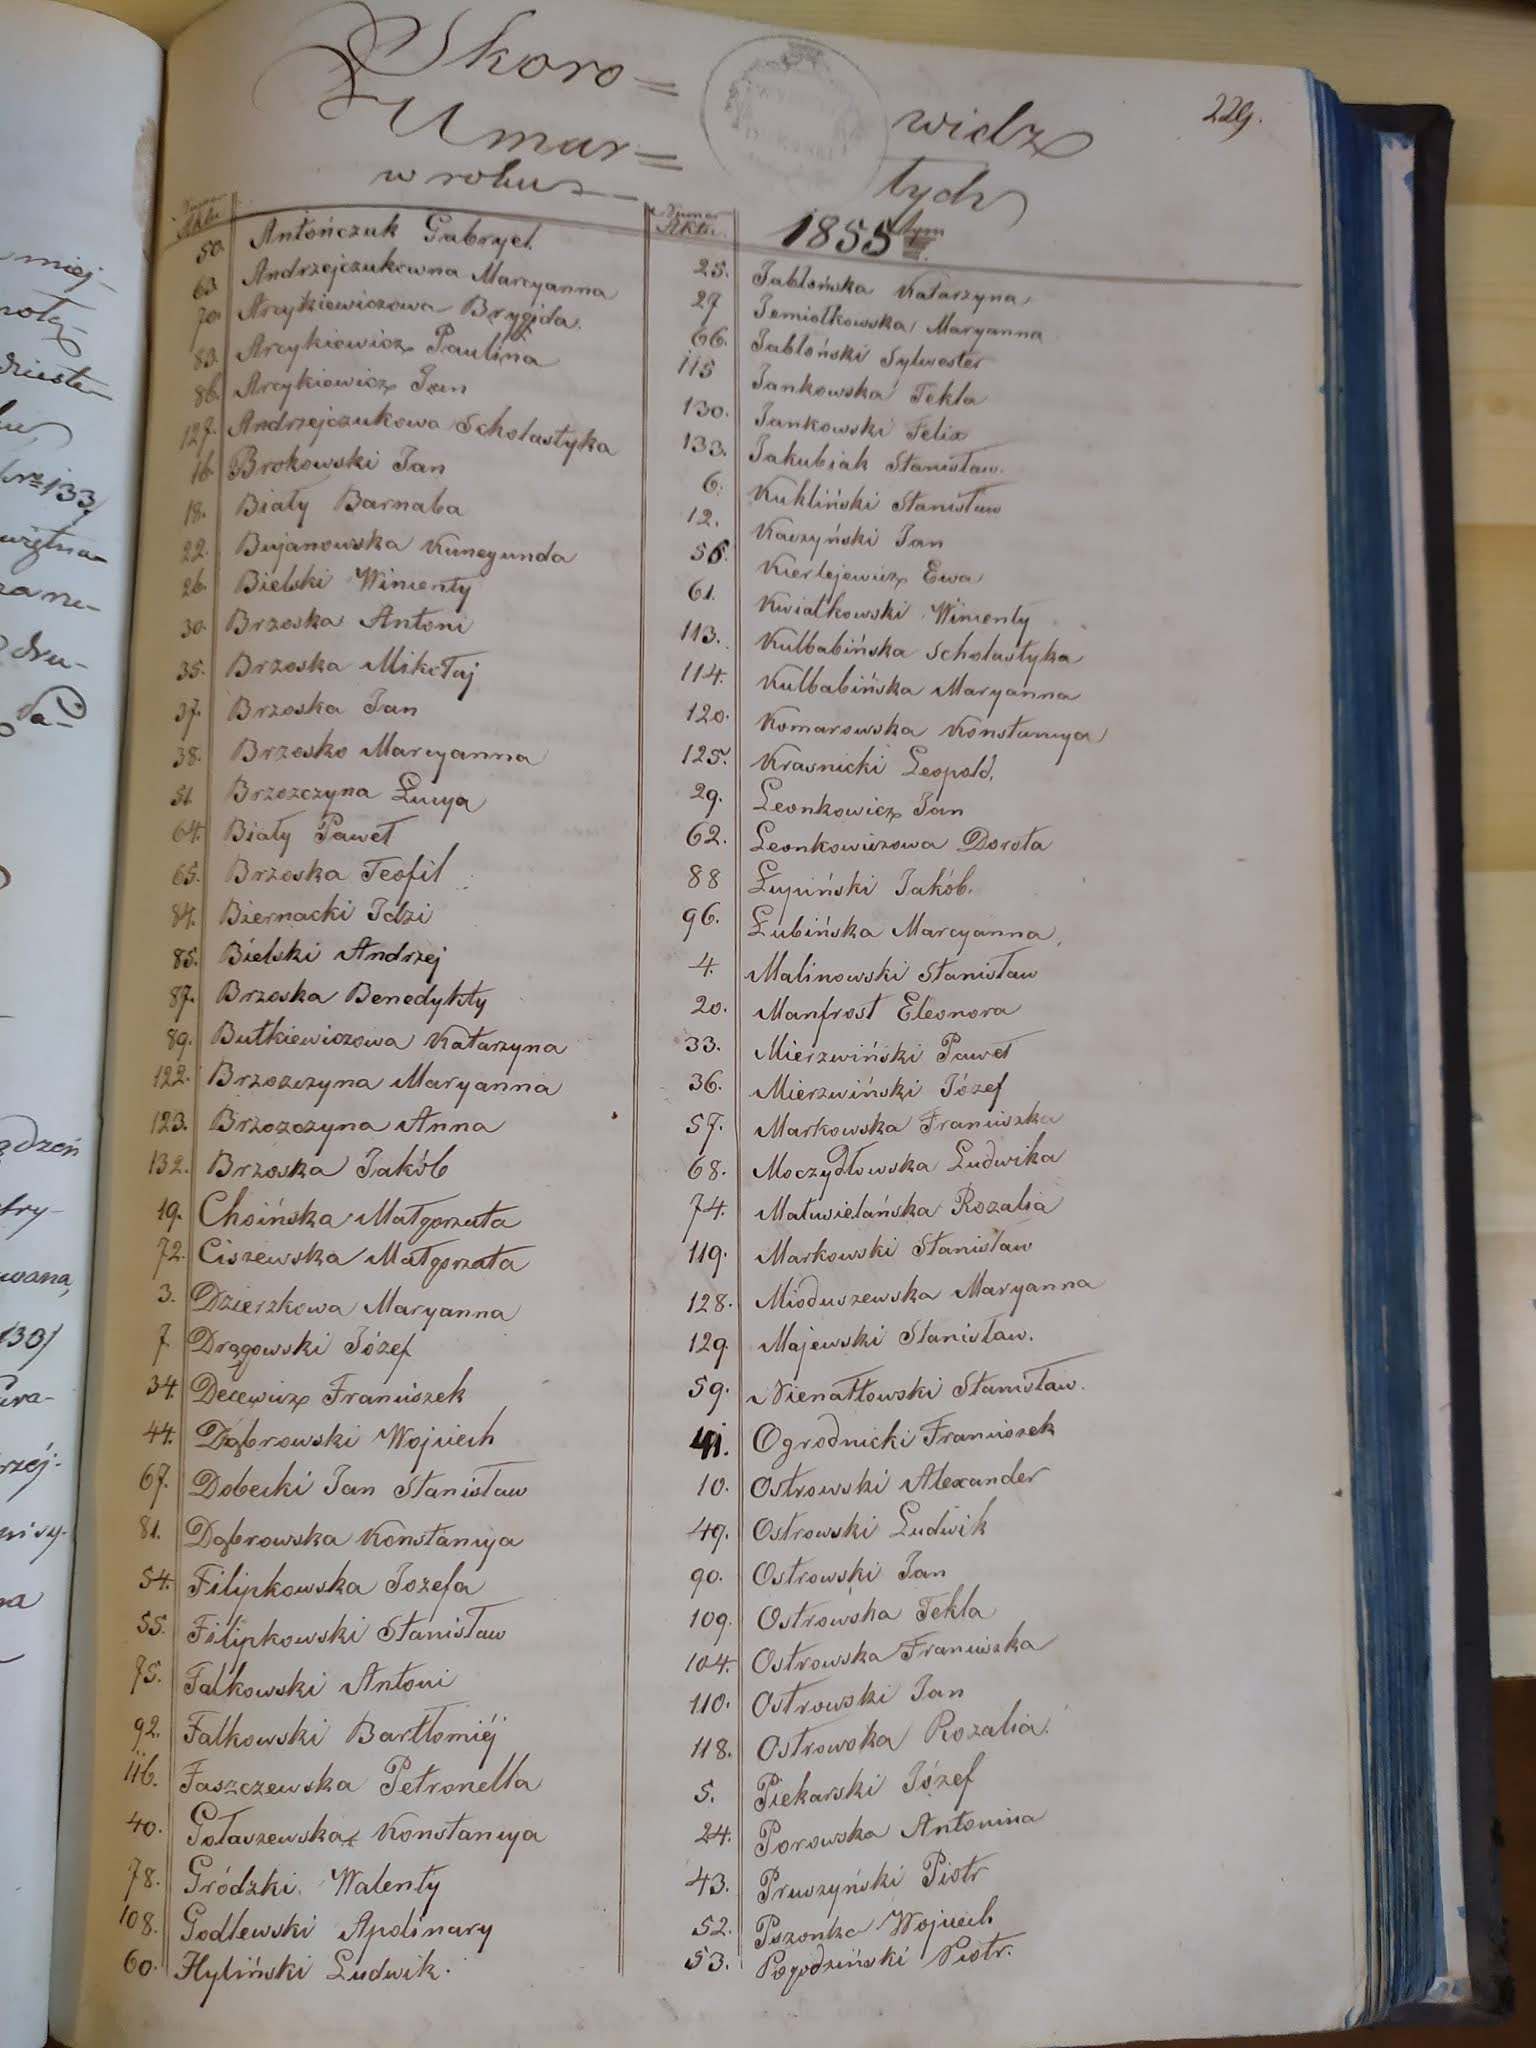 229.
Skoro= widz
Umar= tych
w roku 1855 tym
Numer Aktu
50. Antończuk Gabryel.
63. Andrzejczukowna Maryanna
70. Arcykiewiczowa Brygida.
83. Arcykiewicz Paulina
86. Arcykiewicz Jan
127. Andrzejczukowa Scholastyka
16. Brokowski Jan
18. Biały Barnaba
22. Bujanowska Kunegunda
26. Bielski Wincenty
30. Brzoska Antoni
35. Brzoska Mikołaj
37. Brzoska Jan
38. Brzosko Maryanna
51. Brzozczyna Łucya
64. Biały Paweł
65. Brzoska Teofil
84. Biernacki Idzi
85. Bielski Andrzej
87. Brzoska Benedykty
89. Butkiewiczowa Katarzyna
122. Brzozczyna Maryanna
123. Brzozczyna Anna
132. Brzoska Jakób
19. Choińska Małgorzata
72. Ciszewska Małgorzata
3. Dzierzkowa Maryanna
7 Drągowski Józef
34. Decewicz Franciszek
44. Dąbrowski Wojciech
67. Dobecki Jan Stanisław
81. Dąbrowska Konstancya
54. Filipkowska Jozefa
55. Filipkowski Stanisław
75. Falkowski Antoni
92. Falkowski Bartłomiéj
116. Faszczewska Petronella
40. Gołaszewska Konstancya
78. Gródzki Walenty
108. Godlewski Apolinary
60. Hyliński Ludwik.
Numer Aktu
25. Jabłońska Katarzyna
27 Jemiołkowska Maryanna
66. Jabłoński Sylwester
115 Jankowska Tekla
130. Jankowski Felix
133. Jakubiak Stanisław.
6. Kukliński Stanisław
12. Kaczyński Jan
56. Kierlejewicz Ewa
61. Kwiatkowski Wincenty
113. Kulbabińska Scholastyka
114. Kulbabińska Maryanna
120. Komarowska Konstancya
125. Krasnicki Leopold.
29. Leonkowicz Jan
62. Leonkowiczowa Dorota
88 Łupiński Jakób.
96. Łubińska Maryanna
4. Malinowski Stanisław
20. Manfrost Eleonora
33. Mierzwiński Paweł
36. Mierzwiński Józef
57. Markowska Franciszka
68. Moczydłowska Ludwika
74. Matwielańska Rozalia
119. Markowski Stanisław
128. Mioduszewska Maryanna
129. Majewski Stanisław.
59. Nienałtowski Stanisław.
41. Ogrodnicki Franciszek
10. Ostrowski Alexander
49. Ostrowski Ludwik
90. Ostrowski Jan
109. Ostrowska Tekla
104. Ostrowska Franciszka
110. Ostrowski Jan
118. Ostrowska Rozalia.
5. Piekarski Józef
24. Porowska Antonina
43. Pruszyński Piotr
52. Pszonka Wojciech
53. Pogodziński Piotr.